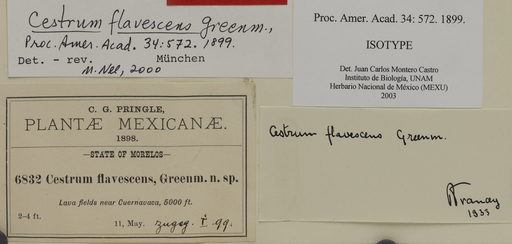 Cestrum flavescens Greenm.,
Proc. Amer. Acad. 34:572. 1899.
Det. - rev. München
M. Nee, 2000
Proc. Amer. Acad. 34: 572. 1899.
ISOTYPE
Det. Juan Carlos Montero Castro
Instituto de Biología, UNAM
Herbario Nacional de México (MEXU)
2003
C. G. PRINGLE,
PLANTÆ MEXICANÆ.
1898.
—STATE OF MORELOS—
6832 Cestrum flavescens, Greenm. n. sp.
Lava fields near Cuernavaca, 5000 ft.
2–4 ft.
11, May. zugeg. I. 99.
Cestrum flavescens Greenm.
Francey
1933